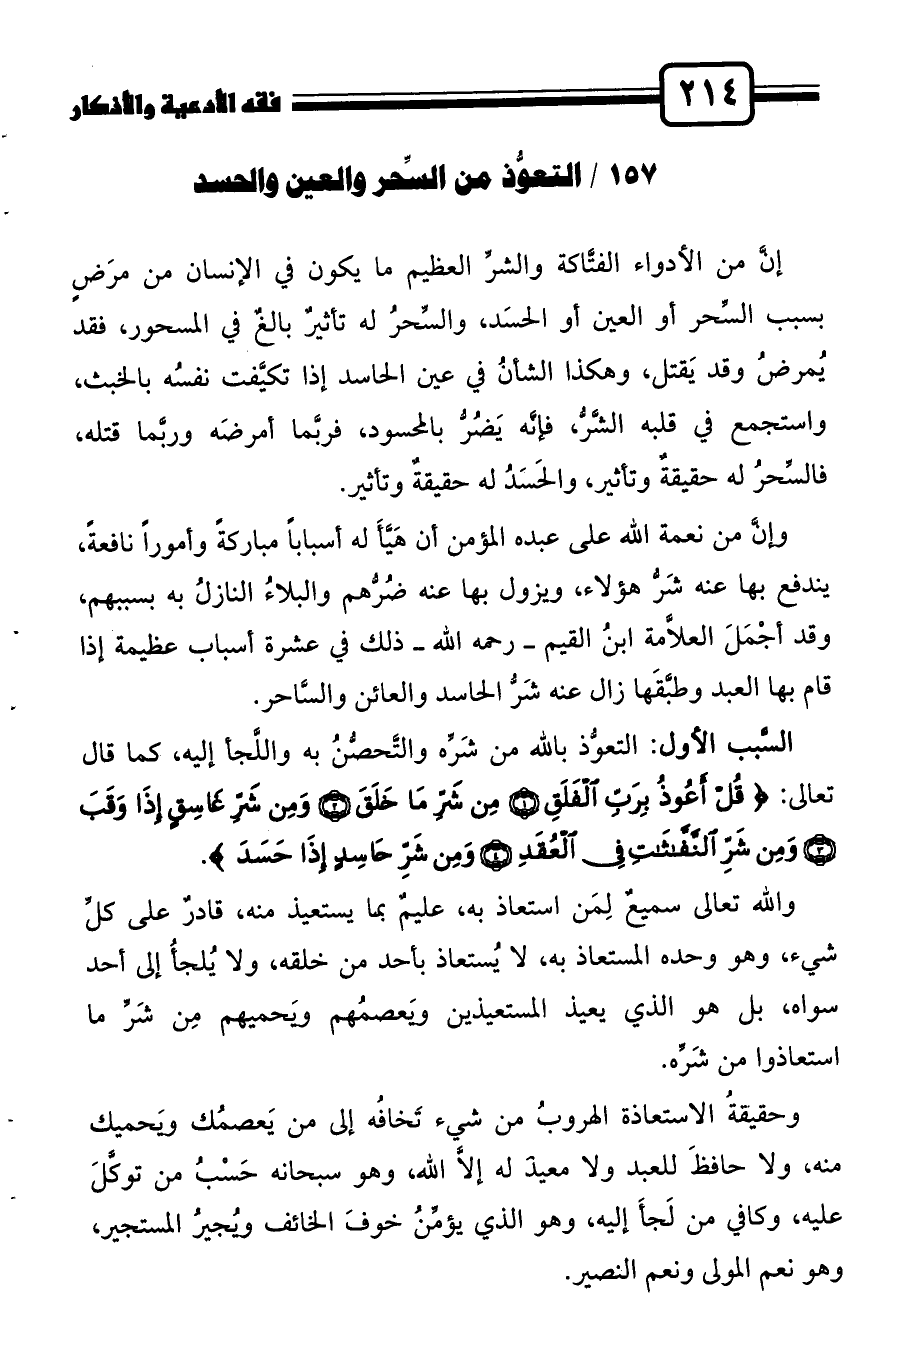 ٢١٤ فقه الأدعية والأذكار
١٥٧ / التعوُّذ من السِّحر والعين والحسد
إنَّ من الأدواء الفتَّاكة والشرِّ العظيم ما يكون في الإنسان من مرَضٍ
بسبب السِّحر أو العين أو الحسَد، والسِّحرُ له تأثيرٌ بالغٌ في المسحور، فقد
يُمرضُ وقد يَقتل، وهكذا الشأنُ في عين الحاسد إذا تكيَّفت نفسُه بالخبث،
واستجمع في قلبه الشَّرُّ، فإنَّه يَضُرُّ بالمحسود، فربَّما أمرضَه وربَّما قتله،
فالسِّحرُ له حقيقةٌ وتأثير، والحَسَدُ له حقيقةٌ وتأثير.
وإنَّ من نعمة الله على عبده المؤمن أن هَيَّأَ له أسباباً مباركةً وأموراً نافعةً،
يندفع بها عنه شَرُّ هؤلاء، ويزول بها عنه ضُرُّهم والبلاءُ النازلُ به بسببهم،
وقد أجْمَلَ العلاَّمة ابنُ القيم ـ رحمه الله ـ ذلك في عشرة أسباب عظيمة إذا
قام بها العبد وطبَّقَها زال عنه شَرُّ الحاسد والعائن والسَّاحر.
السَّبب الأول: التعوُّذ بالله من شَرِّه والتَّحصُّنُ به واللَّجأ إليه، كما قال
تعالى: ﴿ قُلْ أَعُوذُ بِرَبِّ ٱلْفَلَقِ ١ مِن شَرِّ مَا خَلَقَ ٢ وَمِن شَرِّ غَاسِقٍ إِذَا وَقَبَ
٣ وَمِن شَرِّ ٱلنَّفَّٰثَٰتِ فِى ٱلْعُقَدِ ٤ وَمِن شَرِّ حَاسِدٍ إِذَا حَسَدَ ﴾.
والله تعالى سميعٌ لِمَن استعاذ به، عليمٌ بما يستعيذ منه، قادرٌ على كلِّ
شيء، وهو وحده المستعاذ به، لا يُستعاذ بأحد من خلقه، ولا يُلجأُ إلى أحد
سواه، بل هو الذي يعيذ المستعيذين ويَعصمُهم ويَحميهم مِن شَرِّ ما
استعاذوا من شَرِّه.
وحقيقةُ الاستعاذة الهروبُ من شيء تَخافُه إلى من يَعصمُك ويَحميك
منه، ولا حافظَ للعبد ولا معيذَ له إلاَّ الله، وهو سبحانه حَسْبُ من توكَّلَ
عليه، وكافي من لَجأَ إليه، وهو الذي يؤمِّنُ خوفَ الخائف ويُجيرُ المستجير،
وهو نعم المولى ونعم النصير.